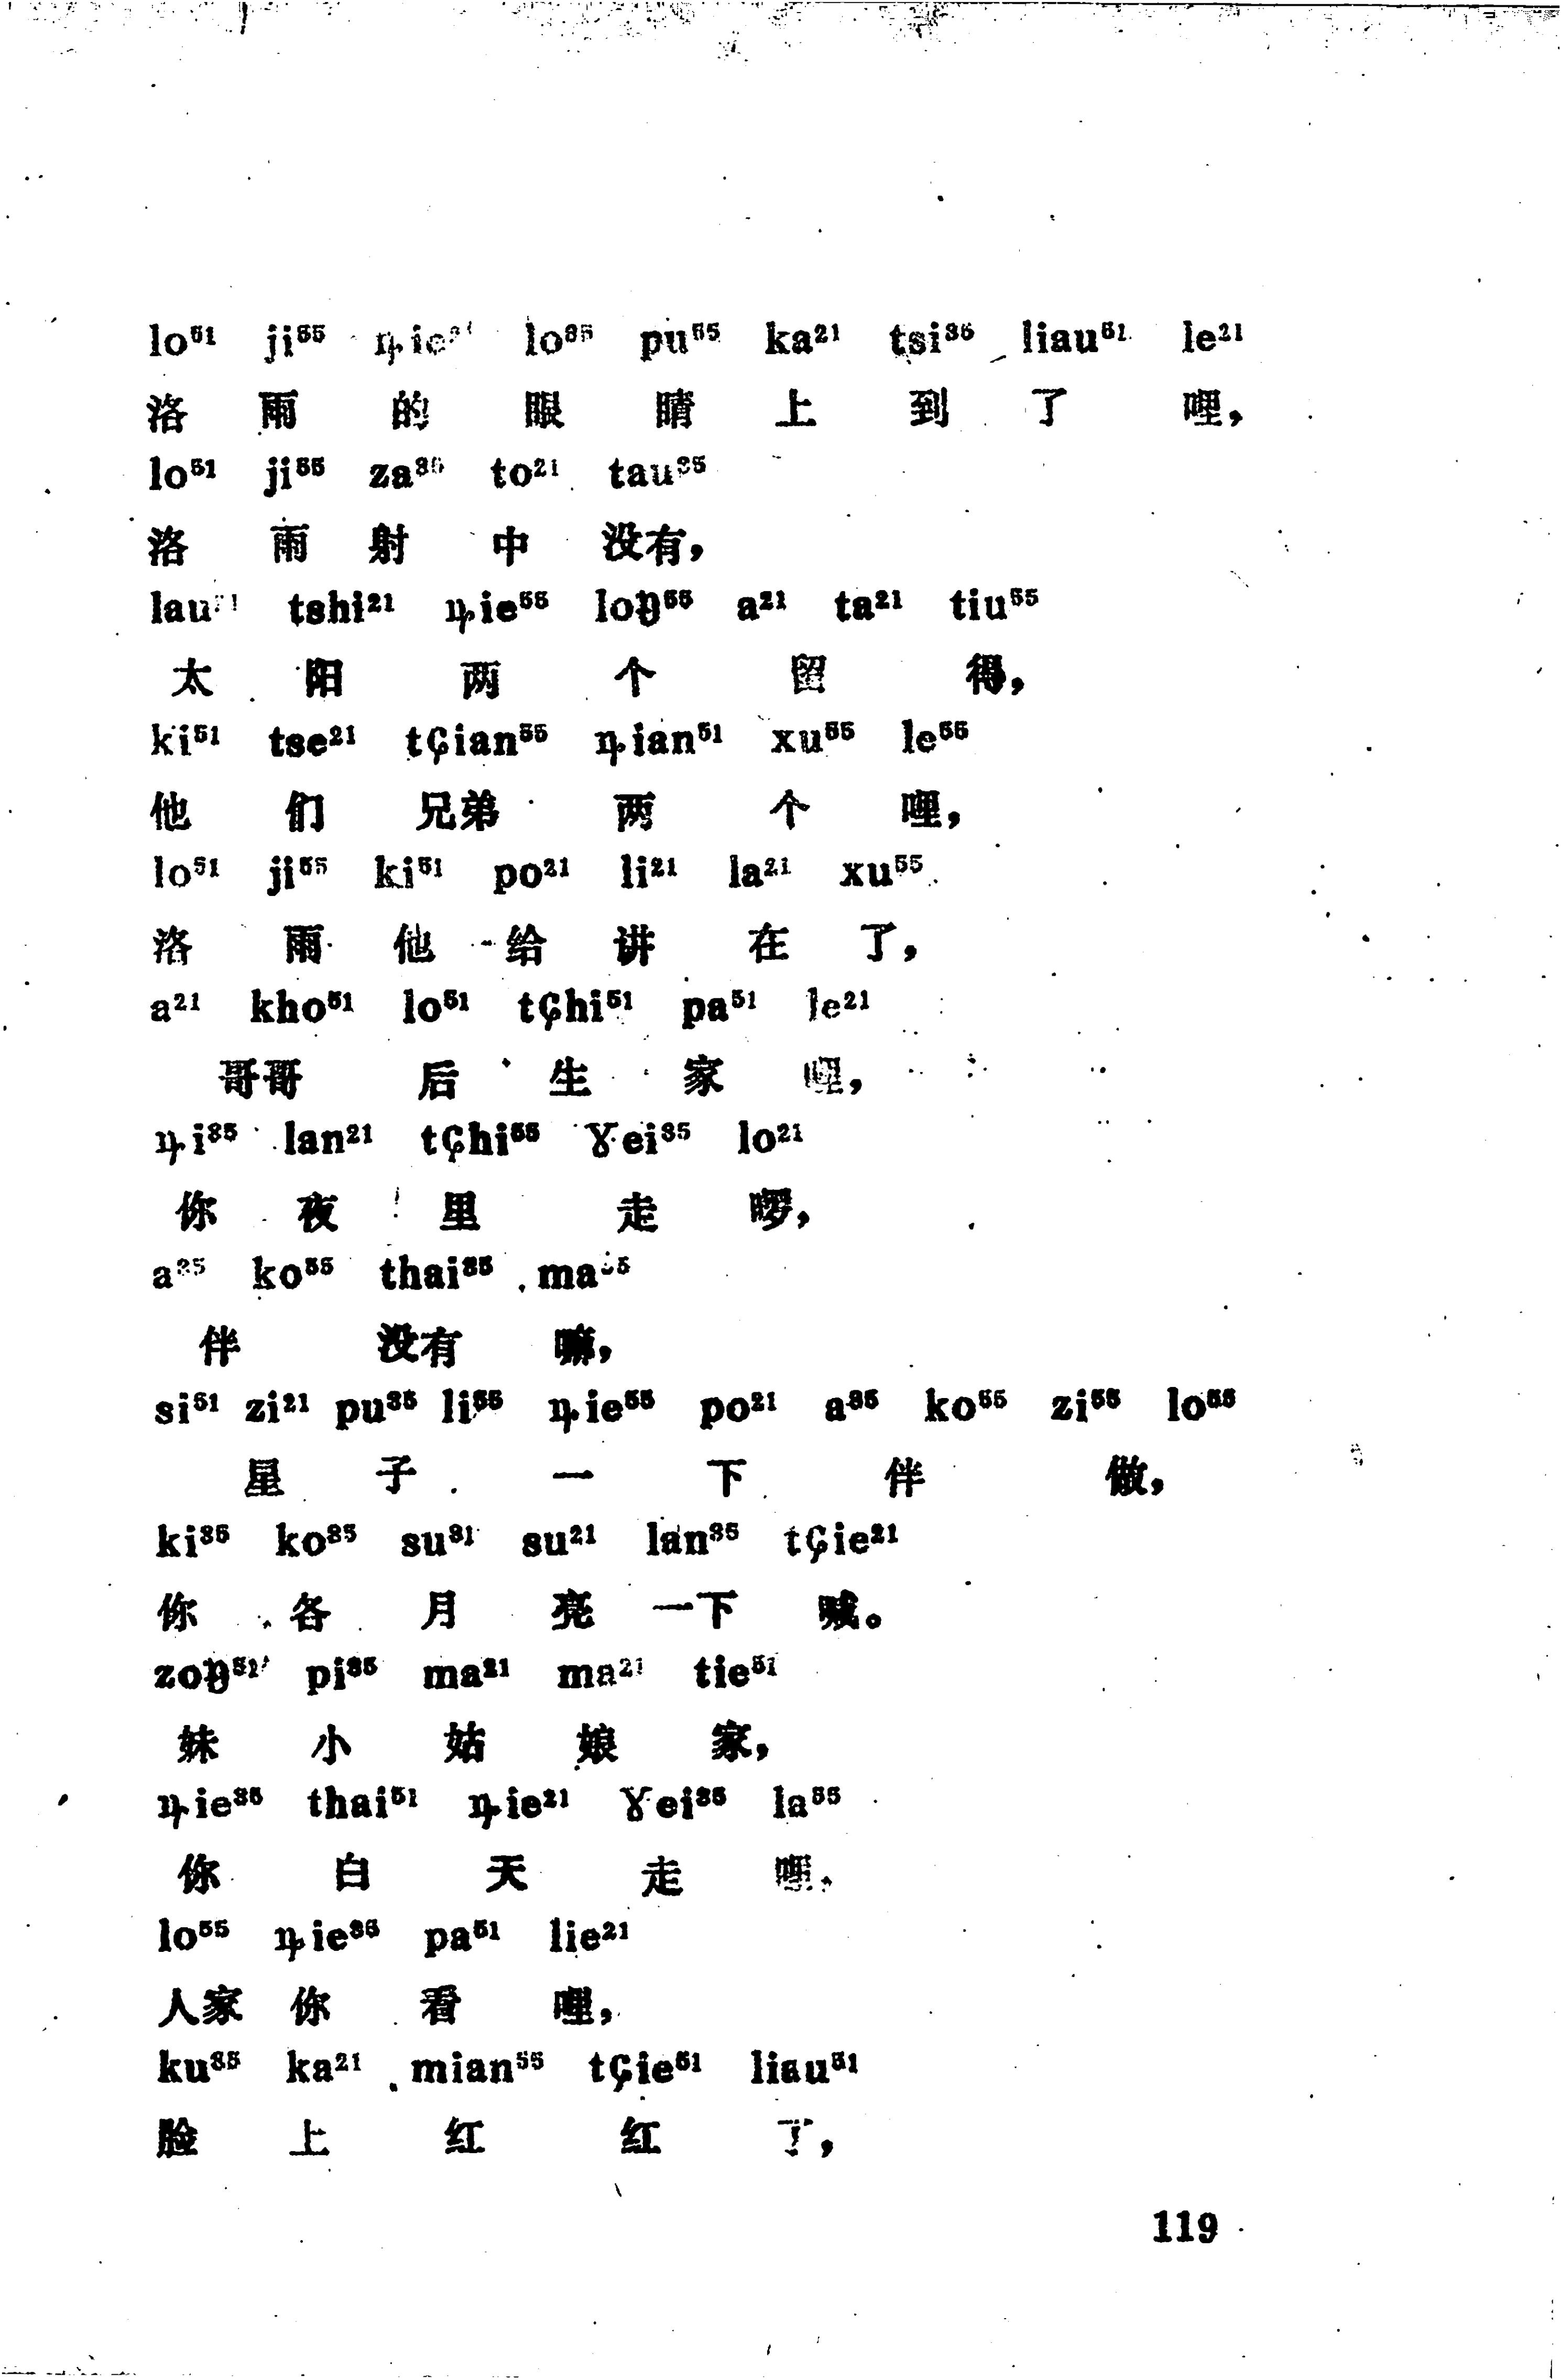 lo⁵¹ ji⁵⁵ ȵie²¹ lo³⁵ pu⁵⁵ ka²¹ tsi³⁵ liau⁵¹ le²¹
洛 雨 的 眼 睛 上 到 了 哩，
lo⁵¹ ji⁵⁵ za³⁵ to²¹ tau³⁵
洛 雨 射 中 没有，
lau²¹ tshi²¹ ȵie⁵⁵ loŋ⁵⁵ a²¹ ta²¹ tiu⁵⁵
太 阳 两 个 留 得，
ki⁵¹ tse²¹ tɕian⁵⁵ ȵian⁵¹ xu⁵⁵ le⁵⁵
他 们 兄弟 两 个 哩，
lo⁵¹ ji⁵⁵ ki⁵¹ po²¹ li²¹ la²¹ xu⁵⁵
洛 雨 他 给 讲 在 了，
a²¹ kho⁵¹ lo⁵¹ tɕhi⁵¹ pa⁵¹ le²¹
哥哥 后 生 家 哩，
ȵi³⁵ lan²¹ tɕhi⁵⁵ ɣei³⁵ lo²¹
你 夜 里 走 啰，
a³⁵ ko⁵⁵ thai³⁵ ma⁵⁵
伴 没有 嘛，
si⁵¹ zi²¹ pu³⁵ li⁵⁵ ȵie⁵⁵ po²¹ a³⁵ ko⁵⁵ zi⁵⁵ lo⁵⁵
星 子 一 下 伴 做，
ki³⁵ ko³⁵ su³¹ su²¹ lan³⁵ tɕie²¹
你 各 月 亮 一下 喊。
zoŋ⁵¹ pi³⁵ ma²¹ ma²¹ tie⁵¹
妹 小 姑 娘 家，
ȵie³⁵ thai⁵¹ ȵie²¹ ɣei³⁵ la⁵⁵
你 白 天 走 哩，
lo⁵⁵ ȵie³⁵ pa⁵¹ lie²¹
人家 你 看 哩，
ku³⁵ ka²¹ mian⁵⁵ tɕie⁵¹ liau⁵¹
脸 上 红 红 了，
119